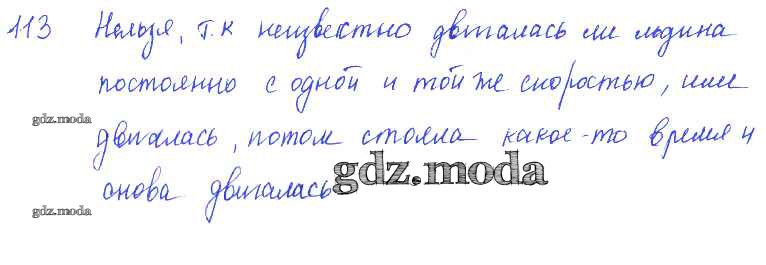 113 Нельзя, т.к неизвестно двигалась ли льдина
постоянно с одной и той же скоростью, или
gdz.moda
двигалась, потом стояла какое-то время и
снова двигалась
gdz.moda
gdz.moda